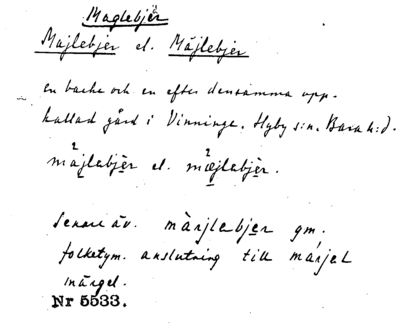 Maglebjer
Majlebjer el. Mäjlebjer
en backe och en efter densamma upp-
kallad gård i Vinninge. Hyby s:n. Bara h:d.
màjlebjèr el. mæ̀jlebjèr.
Senare äv. màrjlebjer gm.
folketym. anslutning till màrjel
märgel.
Nr 5533.